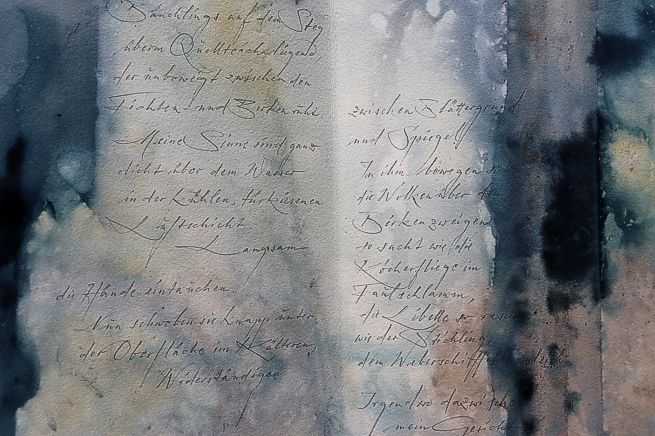 Bäuchlings auf dem Steg
überm Quellteich liegend,
der unbewegt zwischen den
Fichten und Birken ruht
Meine Sinne sind ganz
dicht über dem Wasser
in der kühlen, türkisenen
Luftschicht
Langsam
die Hände eintauchen
Nun schweben sie knapp unter
der Oberfläche im Kälteren,
Widerständigen
zwischen Blättergrund
und Spiegel.
In ihm bewegen sich
die Wolken über den
Birkenzweigen
so sacht wie die
Köcherfliege im
Faulschlamm,
die Libelle so rasch
wie der Stichling,
dem Weberschiffchen
Irgendwo dazwischen
mein Gesicht